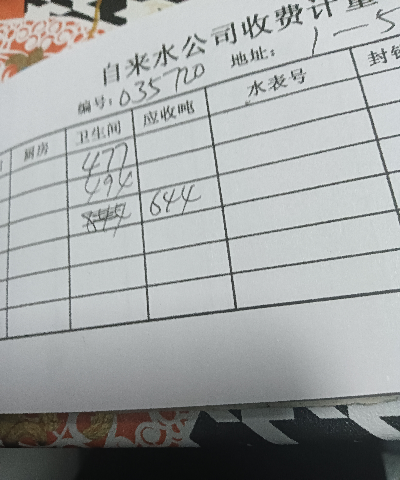 自来水公司收费计量
编号:035720 地址: 1-5
厨房 卫生间 应收吨 水表号 封
477
494
644